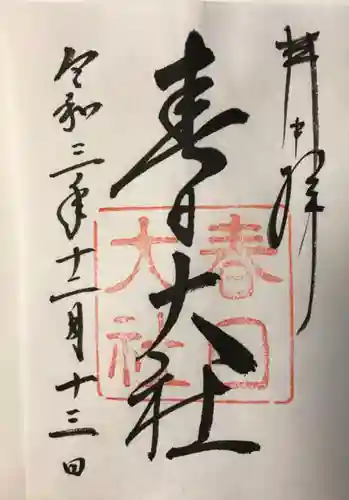 奉拝
春日大社
春日大社
令和三年十二月十三日